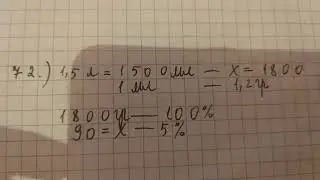 72.) 1,5 л = 1500 мл — х = 1800
1 мл — 1,2 гр
1800 гр — 100%
90 = х — 5%